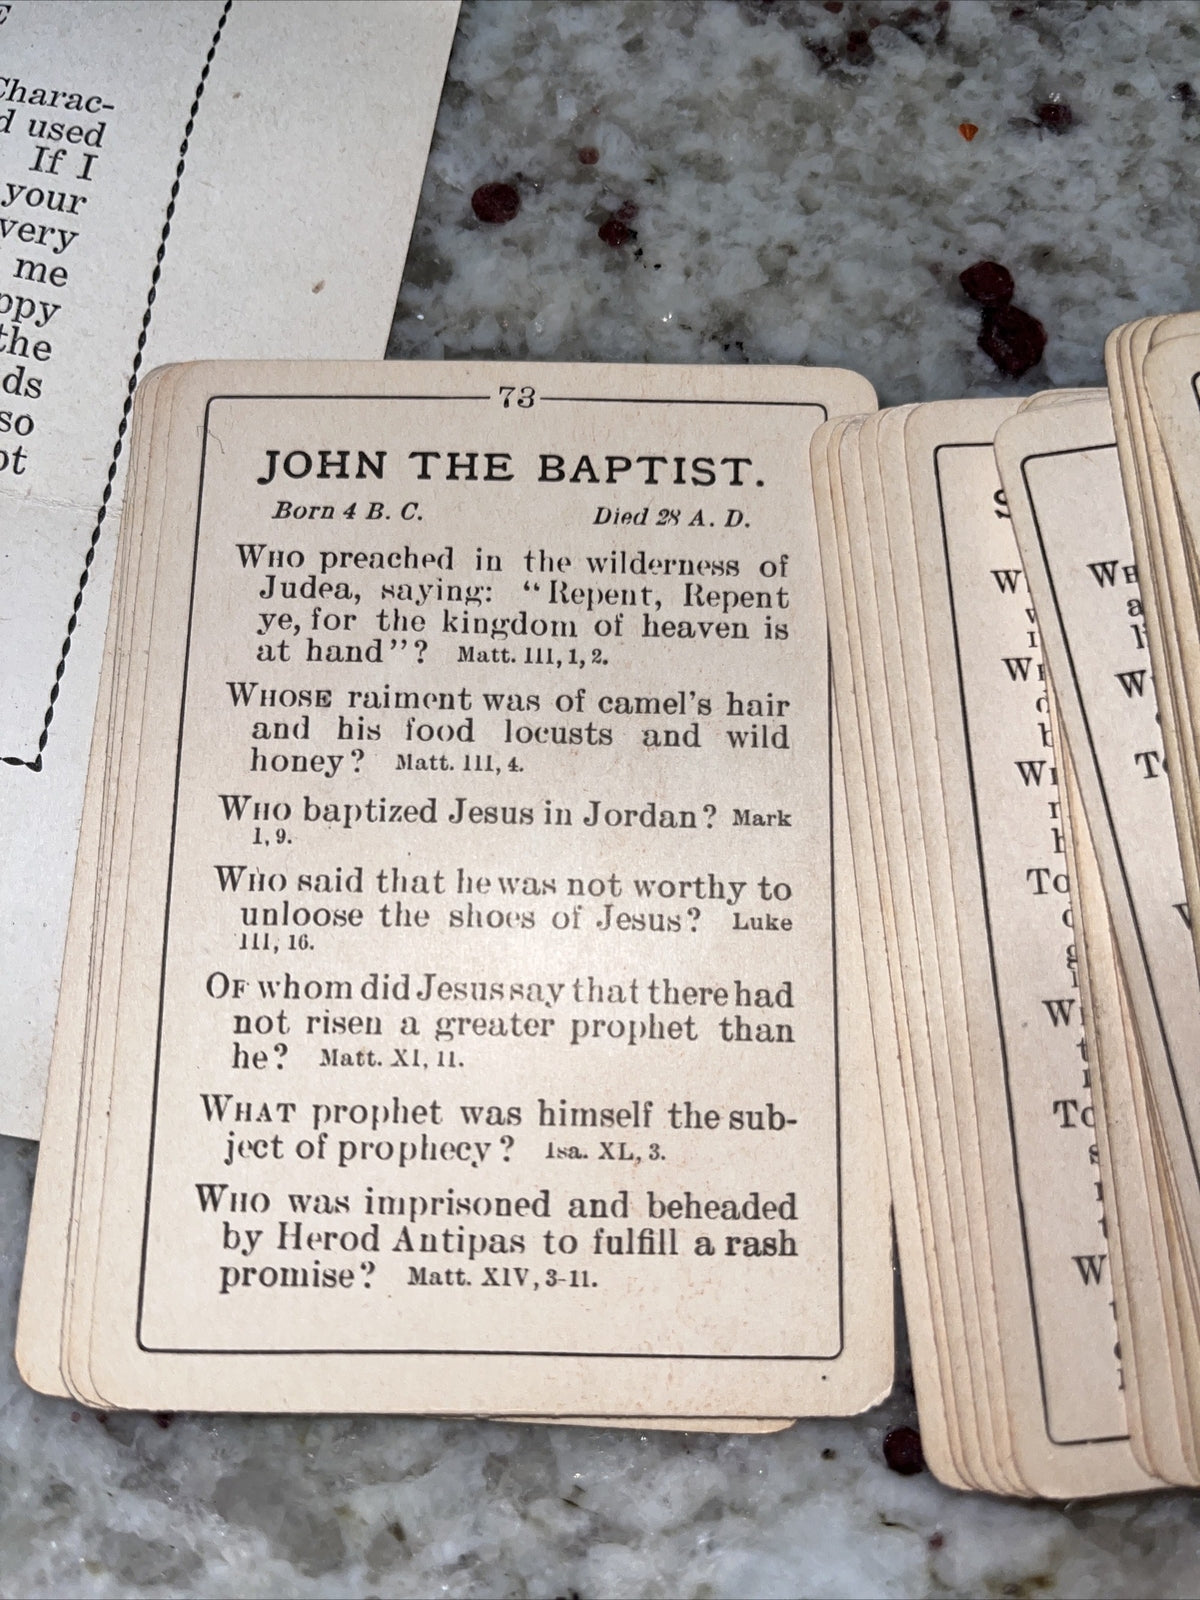 Charac-
used
If I
your
very
me
the
so
73
JOHN THE BAPTIST.
Born 4 B. C. Died 28 A. D.
WHO preached in the wilderness of
Judea, saying: “Repent, Repent
ye, for the kingdom of heaven is
at hand”? Matt. III, 1, 2.
WHOSE raiment was of camel's hair
and his food locusts and wild
honey? Matt. III, 4.
WHO baptized Jesus in Jordan? Mark
I, 9.
WHO said that he was not worthy to
unloose the shoes of Jesus? Luke
III, 16.
OF whom did Jesus say that there had
not risen a greater prophet than
he? Matt. XI, 11.
WHAT prophet was himself the sub-
ject of prophecy? Isa. XL, 3.
WHO was imprisoned and beheaded
by Herod Antipas to fulfill a rash
promise? Matt. XIV, 3-11.
To
To